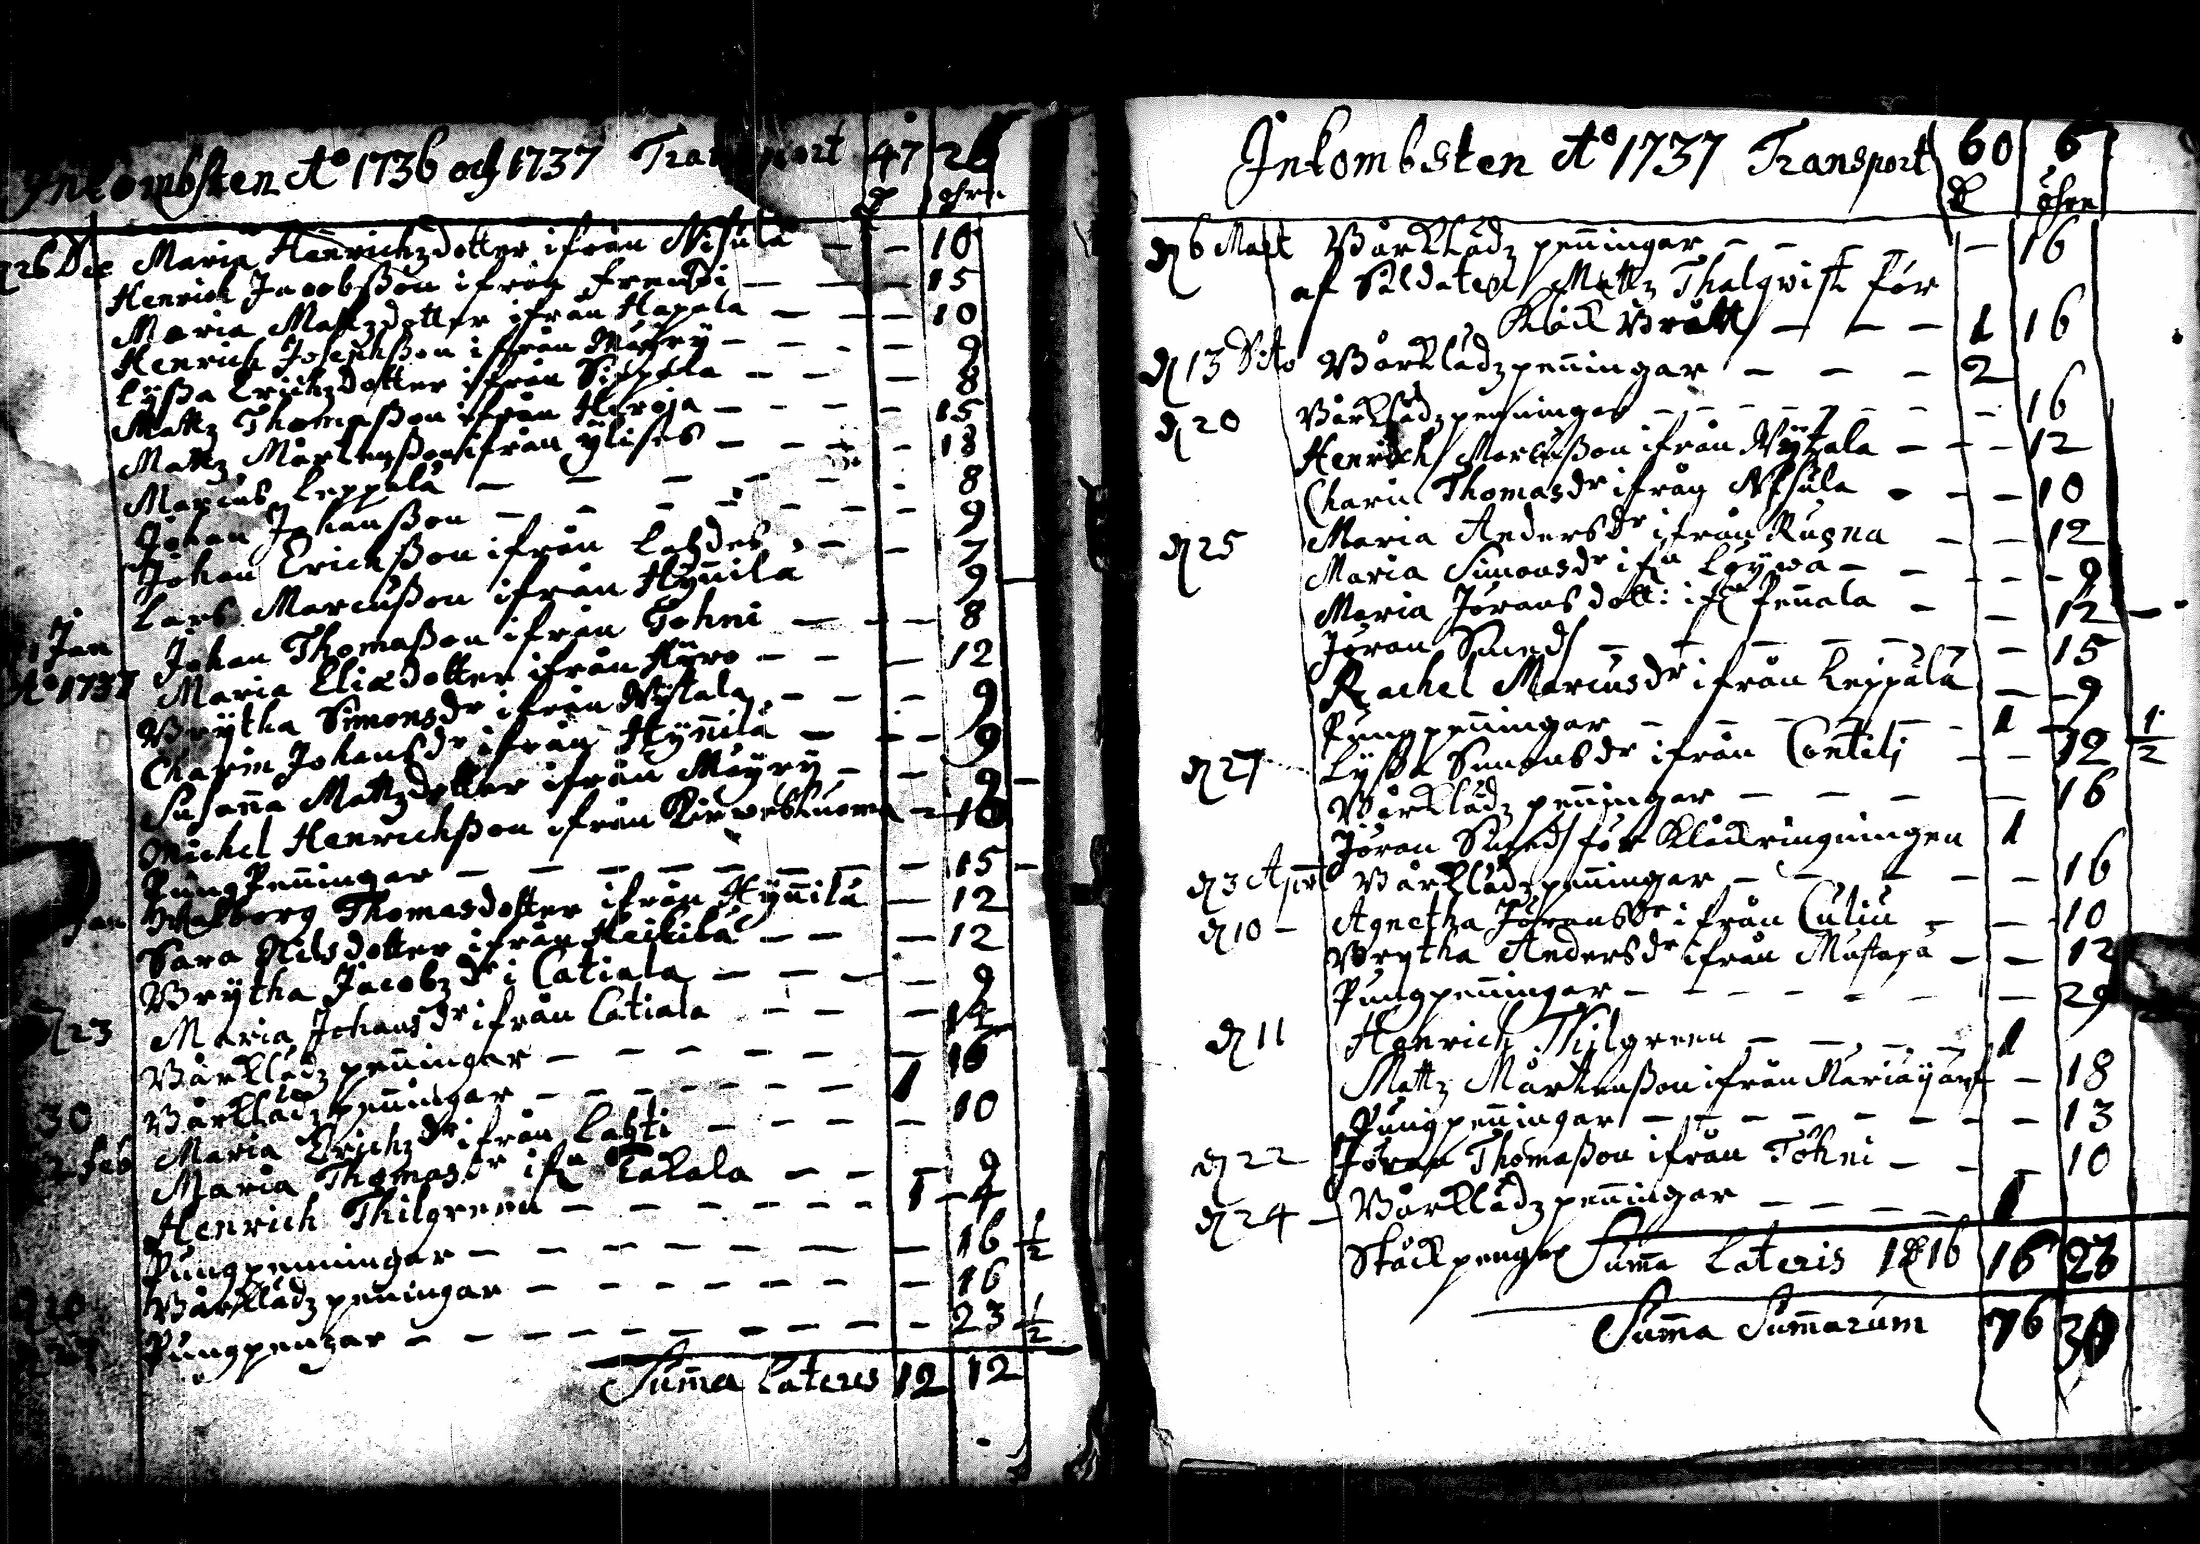 Inkombsten Ao 1736 och 1737 Transport 47 26
öhre
d 26 Dec Maria Henrichzdotter ifrån Nisula — — 10
Henrich Jacobßon ifrån — — 15
Maria Mattzdotter ifrån Hapala — — 10
Henrich Josephßon ifrån — — 9
Lyßa Erichzdotter ifrån Sippola — — 8
Mattz Thomaßon ifrån Haroja — — 15
Mattz Mårtenßon ifrån — — 18
Marcus Leppälä — — 8
Johan Johanßon — — 9
Johan Erichßon ifrån — — 7
Lars Marcußon ifrån Hÿnnilä 9
1 Jan Johan Thomaßon ifrån Tohni — — 8
Ao 1737 Maria Eliædotter ifrån — — 12
Brÿtha Simonsdr ifrån — — 9
Charin Johansdr ifrån Hÿnnilä — — 9
Susanna Mattzdotter ifrån Mÿrÿ — — 9
Michel Henrichßon ifrån Kirvesluoma — 10
Pungpenningar — — 15
Jan Walborg Thomasdotter ifrån Hÿnnilä — 12
Sara Nilsdotter ifrån Heikilä — — 12
Brÿtha Jacobzdr i Catiala — — 9
d 23 Maria Johansdr ifrån Catiala — — 14
Vårklädz penningar — — 16
30 Vårklädz penningar — — 1
2 Feb Maria Erichzdr ifrån Lahti — — 10
Maria Thomasdr ifn — — 9
Henrich Thilgreen — — 1 — 4
Pungpenningar — — 16 1/2
20 Vårklädz penningar — — 16
27 Pungpengar — — 23 1/2
Summa Lateris 12 12
Inkombsten Ao 1737 Transport 60 6
öhre
d 6 Mart Vårklädz penningar — — 16
af Soldaten Mattz Thalqvist för
— — 1 16
d 13 Dito Vårklädzpenningar — — 2
d 20 Vårklädzpenningar — — 16
Henrich Marcußon ifrån — — 12
Charin Thomasdr ifrån Nisula — — 10
d 25 Maria Andersdr ifrån — — 12
Maria Simonsdr ifn — — 9
Maria Jöransdott: ifn Pennala — — 12
Jöran Smed — — 15
Rachel Marcusdr ifrån Leppälä — — 9
Pungpenningar — — 1 —
d 27 Lyßa Simonsdr ifrån Contilj — — 12 1/2
Vårklädz penningar — — 16
Jöran Smed för Klåckringningen 1
d 3 Apr Vårklädzpenningar — — 16
d 10 Agnetha Jöransdr ifrån — — 10
Brÿtha Andersdr ifrån Mustapä — — 12
Pungpenningar — — 29
d 11 Henrich Thilgreen — — 1
Mattz Mårtenßon ifrån — 18
Pungpenningar — — 13
d 22 Jöran Thomaßon ifrån Töhni — — 10
d 24 Vårklädzpenningar — — 1
Ståckpengar Summa Lateris 16 23
Summa Summarum 76 30